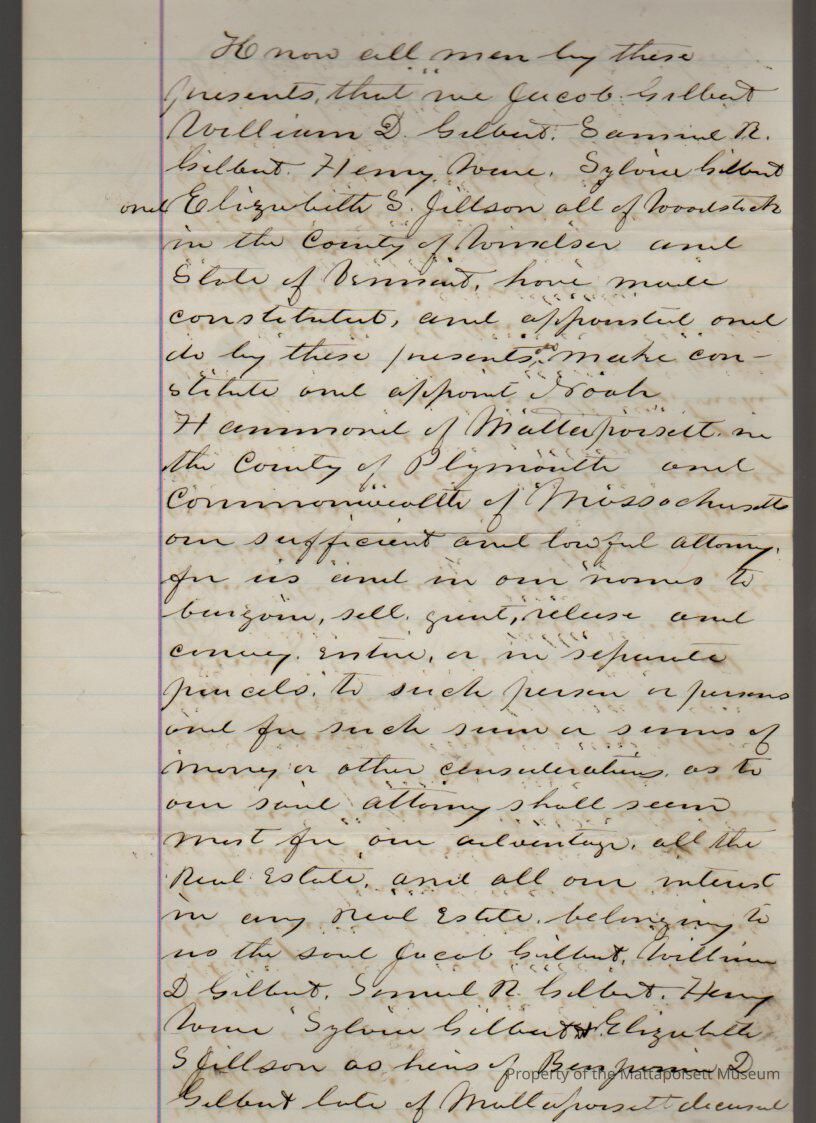 Know all men by these
presents, that we Jacob Gilbert
William D. Gilbert. Samuel R.
Gilbert. Henry Ware. Sylvia Gilbert
and Elizabeth S. Jillson all of Woodstock
in the County of Windsor and
State of Vermont, have made
constituted, and appointed and
do by these presents, make con-
stitute and appoint Noah
Hammond of Mattapoisett in
the County of Plymouth and
Commonwealth of Massachusetts
our sufficient and lawful attorney.
for us and in our names to
bargain, sell. grant, release and
convey. entire, or in separate
parcels. to such person or persons
and for such sum or sums of
money or other considerations. as to
our said attorney shall seem
most for our advantage. all the
Real Estate. and all our interest
in any real Estate. belonging to
us the said Jacob Gilbert. William
D Gilbert. Samuel R Gilbert. Henry
Ware Sylvia Gilbert & Elizabeth
S Jillson as heirs of Benjamin D
Property of the Mattapoisett Museum
Gilbert late of Mattapoisett deceased